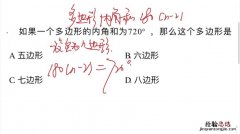 多边形内角和 180(n-2)
如果一个多边形的内角和为720°，那么这个多边形是
A 五边形 B 六边形
180(n-2)=720°
C 七边形 D 八边形
经验总结